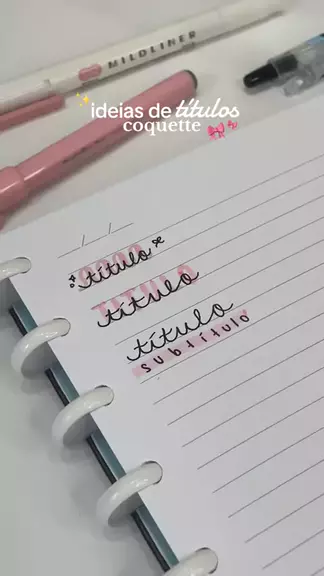 MILDLINER
ideias de títulos
coquette
/ /
título
TITULO
título
título
subtítulo